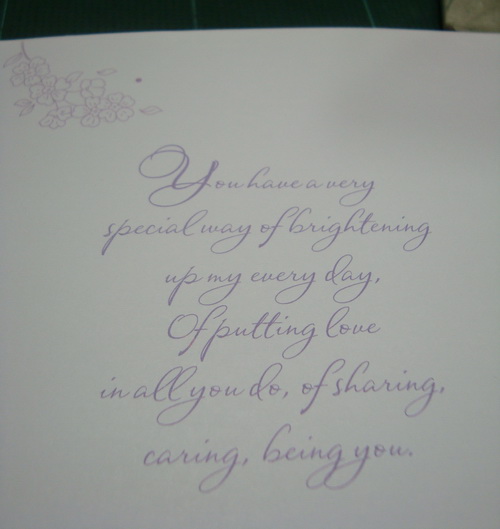 You have a very
special way of brightening
up my every day,
Of putting love
in all you do, of sharing,
caring, being you.